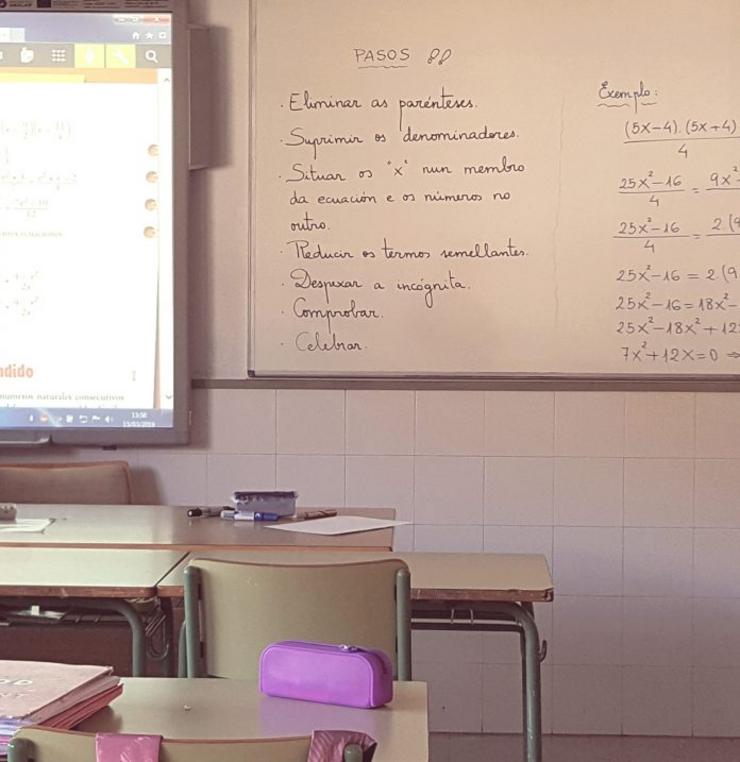 PASOS
· Eliminar as parénteses.
· Suprimir os denominadores.
· Situar os "x" nun membro
da ecuación e os números no
outro.
· Reducir os termos semellantes.
· Despexar a incógnita.
· Comprobar.
· Celebrar.
Exemplo:
(5x-4).(5x+4)
4
25x²-16 = 9x²-
4
25x²-16 = 2.(9
4
25x²-16 = 2.(9
25x²-16=18x²-
25x²-18x²+12
7x²+12x=0 ⇒
ndido
números naturales consecutivos
13:58